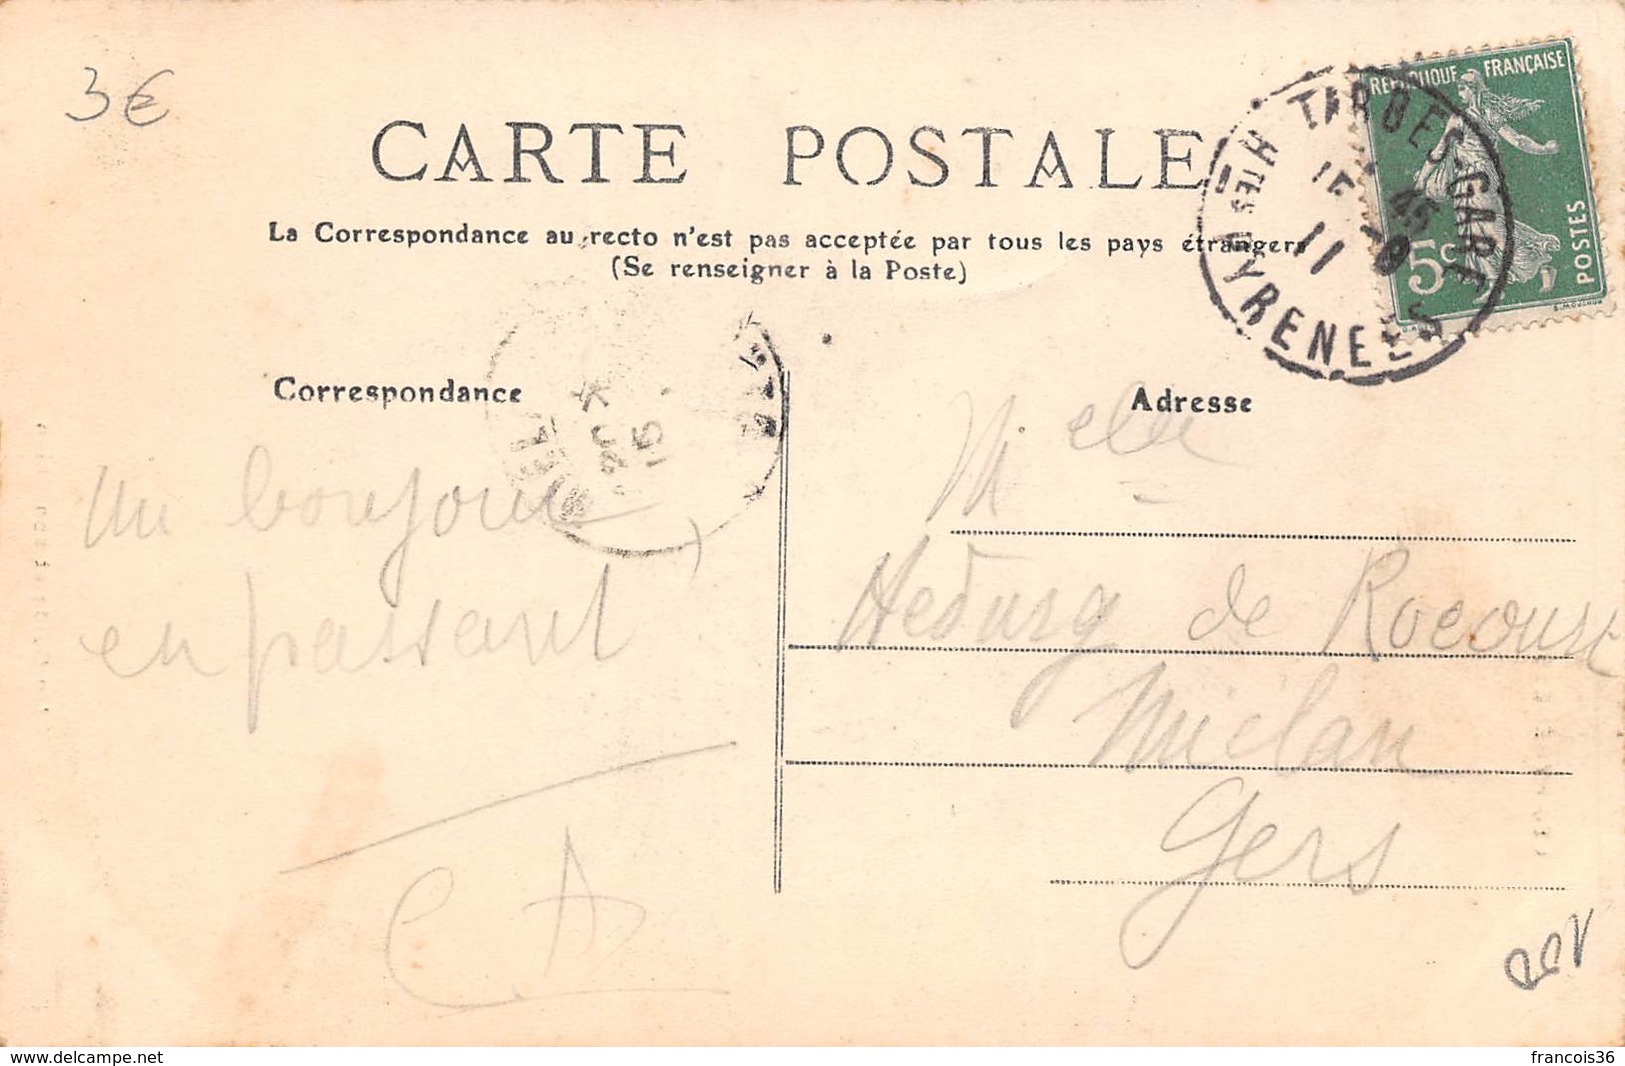 3€
CARTE POSTALE
La Correspondance au recto n'est pas acceptée par tous les pays étrangers
(Se renseigner à la Poste)
RÉPUBLIQUE FRANÇAISE
5c POSTES
TARBES-GARE
45
11
HTES PYRENEES
Correspondance
Adresse
un bonjour
en passant
Melle
de
Miélan
Gers
www.delcampe.net
francois36